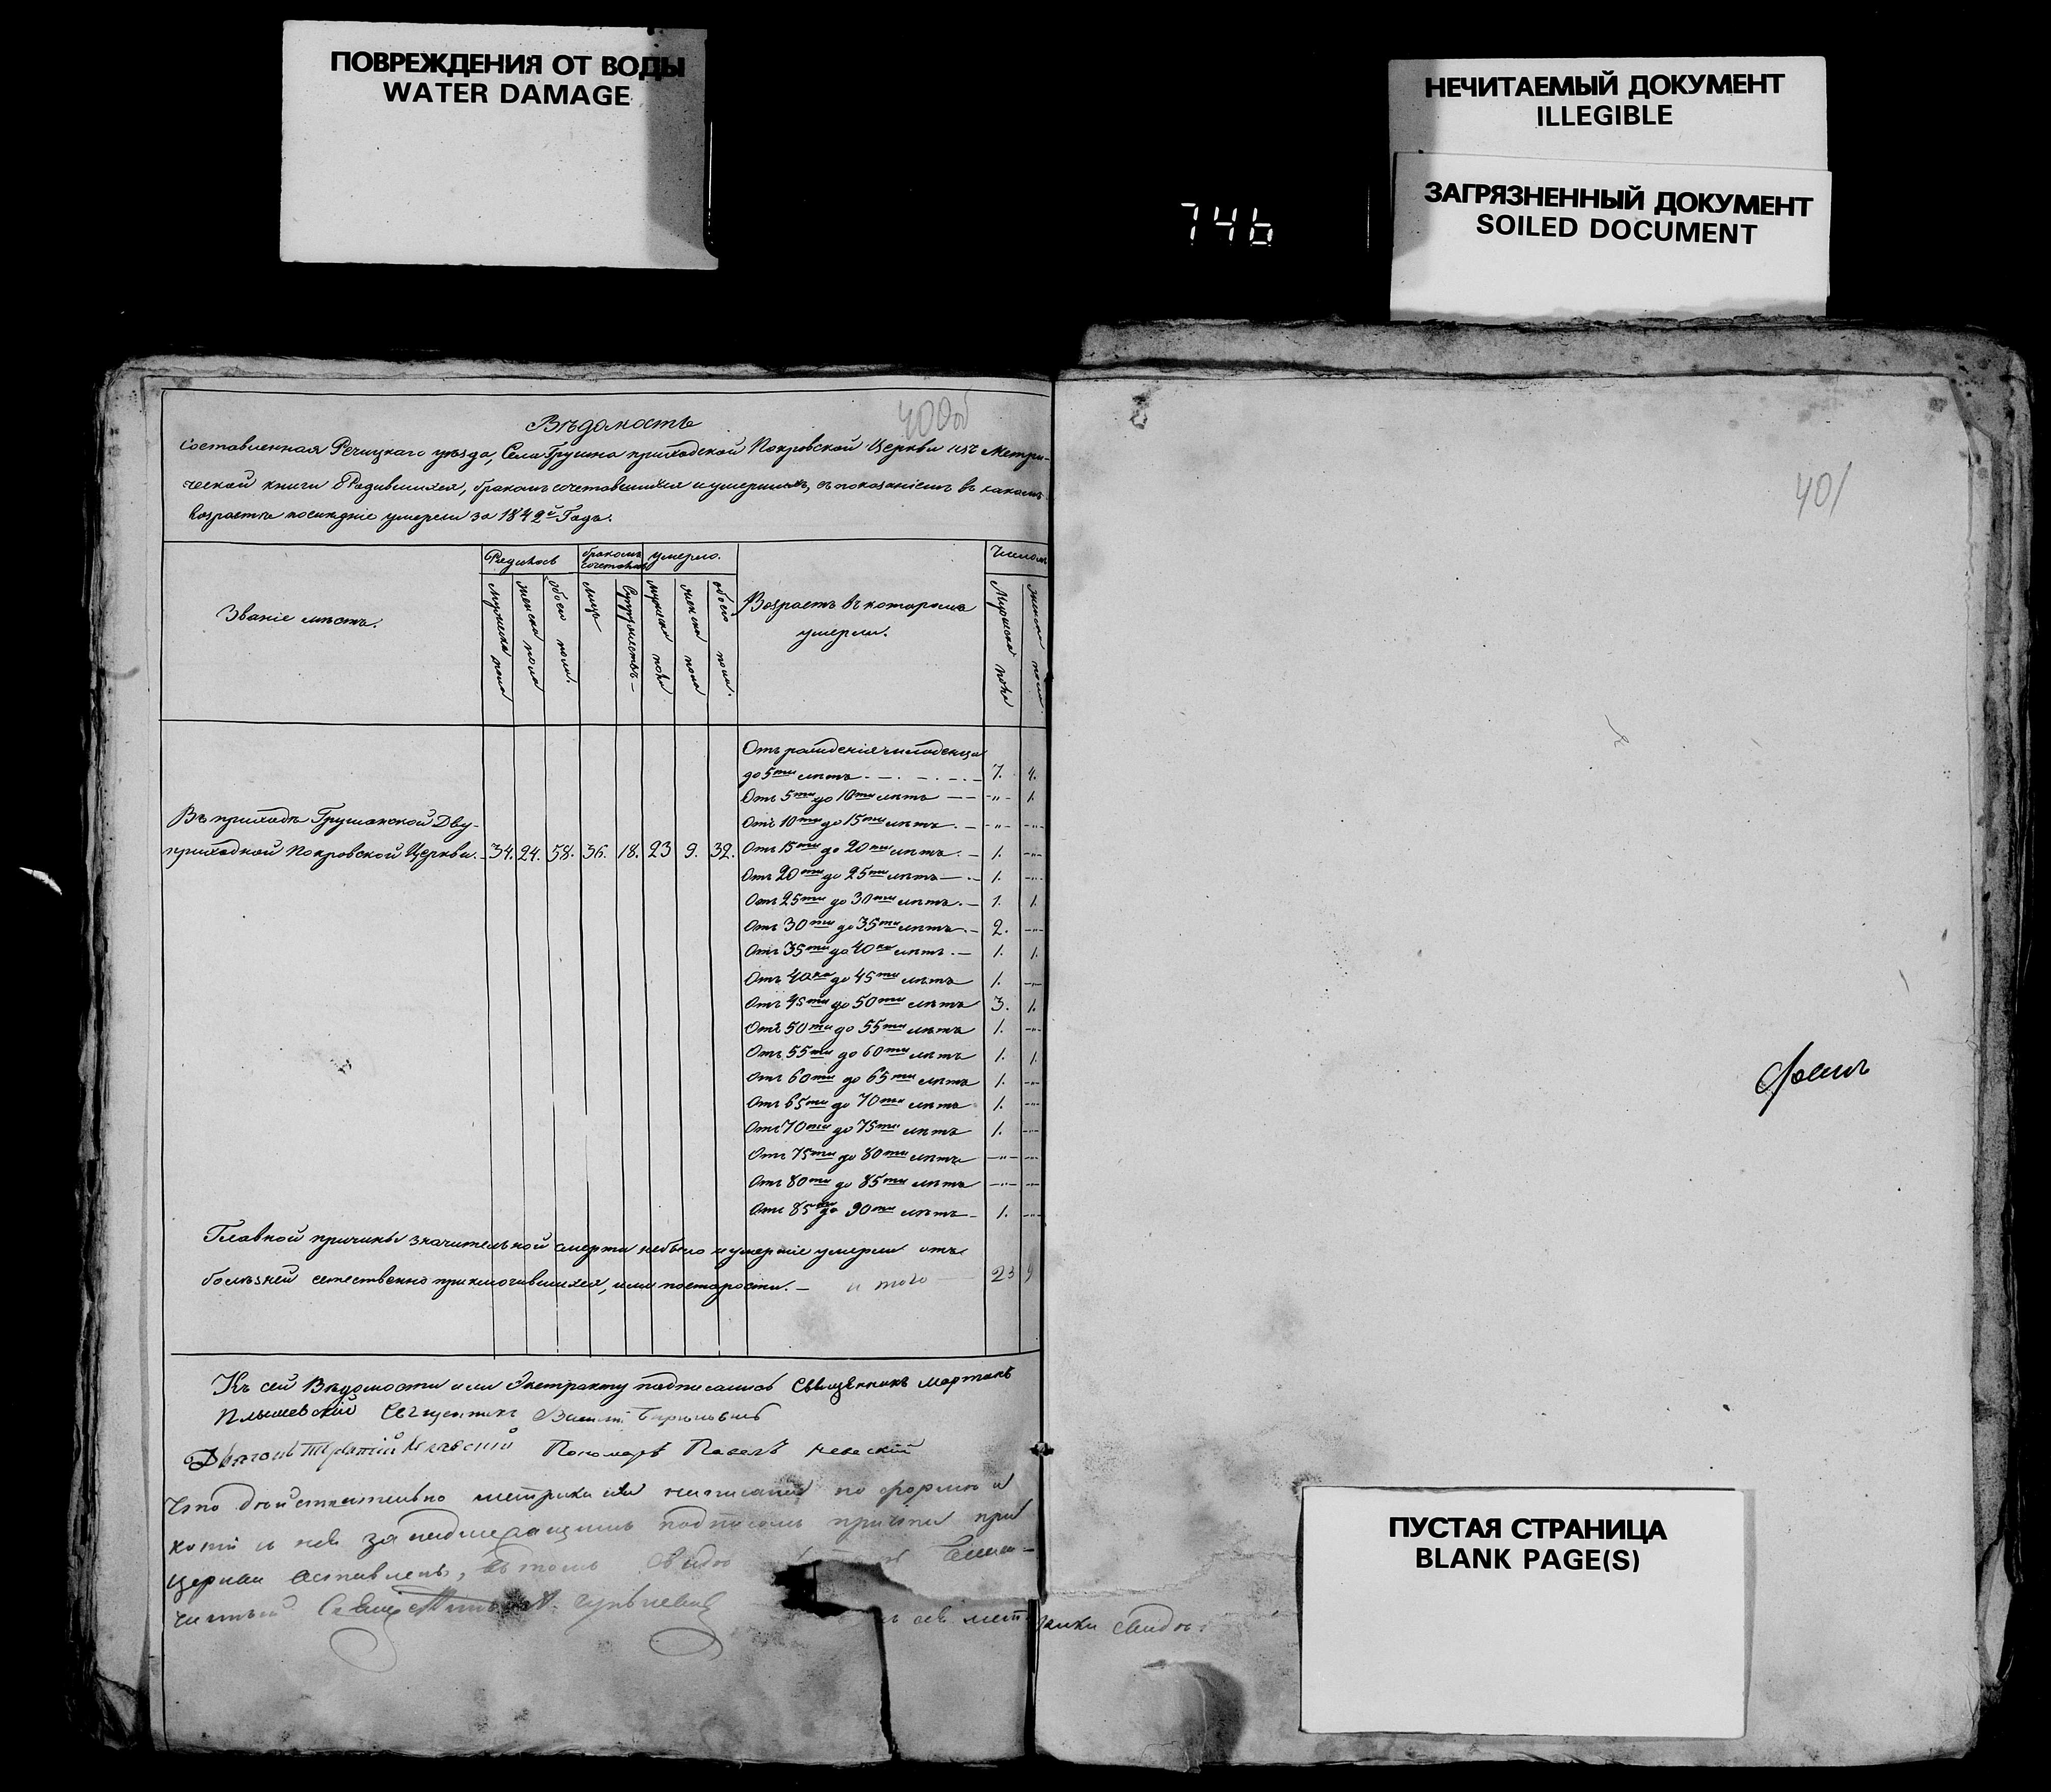 ПОВРЕЖДЕНИЯ ОТ ВОДЫ
WATER DAMAGE
НЕЧИТАЕМЫЙ ДОКУМЕНТ
ILLEGIBLE
ЗАГРЯЗНЕННЫЙ ДОКУМЕНТ
SOILED DOCUMENT
746
400об
401
Вѣдомость
Составленная Речицкаго уѣзда, Села Грушна приходской Покровской Церкви изъ Метри-
ческой книги о Родившихся, бракомъ сочетавшихся и умершихъ, съ показаніемъ въ какомъ
возрастѣ послѣдніе умерли за 1842й Годъ.
Званіе мѣстъ.
Родилось
бракомъ сочеталось
умерло.
Возрастъ въ которомъ умерли.
Числомъ
Мужеска пола
женска пола
обоего пола.
лицъ
супружествъ
мужеска пола
женска пола
обоего пола.
Мужеска пола
женска пола
Въ приходѣ Грушанской Дву-
приходной Покровской Церкви. 34. 24. 58. 36. 18. 23 9. 32.
Отъ рожденія младенца
до 5ти лѣтъ 7. 4.
Отъ 5ти до 10ти лѣтъ — — -"- 1.
Отъ 10ти до 15ти лѣтъ. — -"- -"-
Отъ 15ти до 20ти лѣтъ. — 1. -"-
Отъ 20ти до 25ти лѣтъ — 1. -"-
Отъ 25ти до 30ти лѣтъ. — 1. 1.
Отъ 30ти до 35ти лѣтъ. — 2. -"-
Отъ 35ти до 40ка лѣтъ. — 1. 1.
Отъ 40ка до 45ти лѣтъ 1. -"-
Отъ 45ти до 50ти лѣтъ 3. 1.
Отъ 50ти до 55ти лѣтъ 1. -"-
Отъ 55ти до 60ти лѣтъ 1. 1.
Отъ 60ти до 65ти лѣтъ 1. -"-
Отъ 65ти до 70ти лѣтъ 1. -"-
Отъ 70ти до 75ти лѣтъ 1. -"-
Отъ 75ти до 80ти лѣтъ -"- -"-
Отъ 80ти до 85ти лѣтъ -"- -"-
Отъ 85ти до 90ти лѣтъ — 1. -"-
Главной причины значительной смерти небыло и умершіе умерли отъ
болѣзней естественно приключившихся, или по старости. — и того 23 9
Къ сей Вѣдомости или Экстракту подписались Священникъ Мартинъ
Плышевскій Священникъ Василій
Дьячокъ Пономарь Павелъ Невскій
Что дѣйствительно метрика сія написана по формѣ и
копія с нея за надлежащимъ подписомъ причта при
церкви оставлена, въ томъ свидѣ
сей метрики свидѣ.
ПУСТАЯ СТРАНИЦА
BLANK PAGE(S)